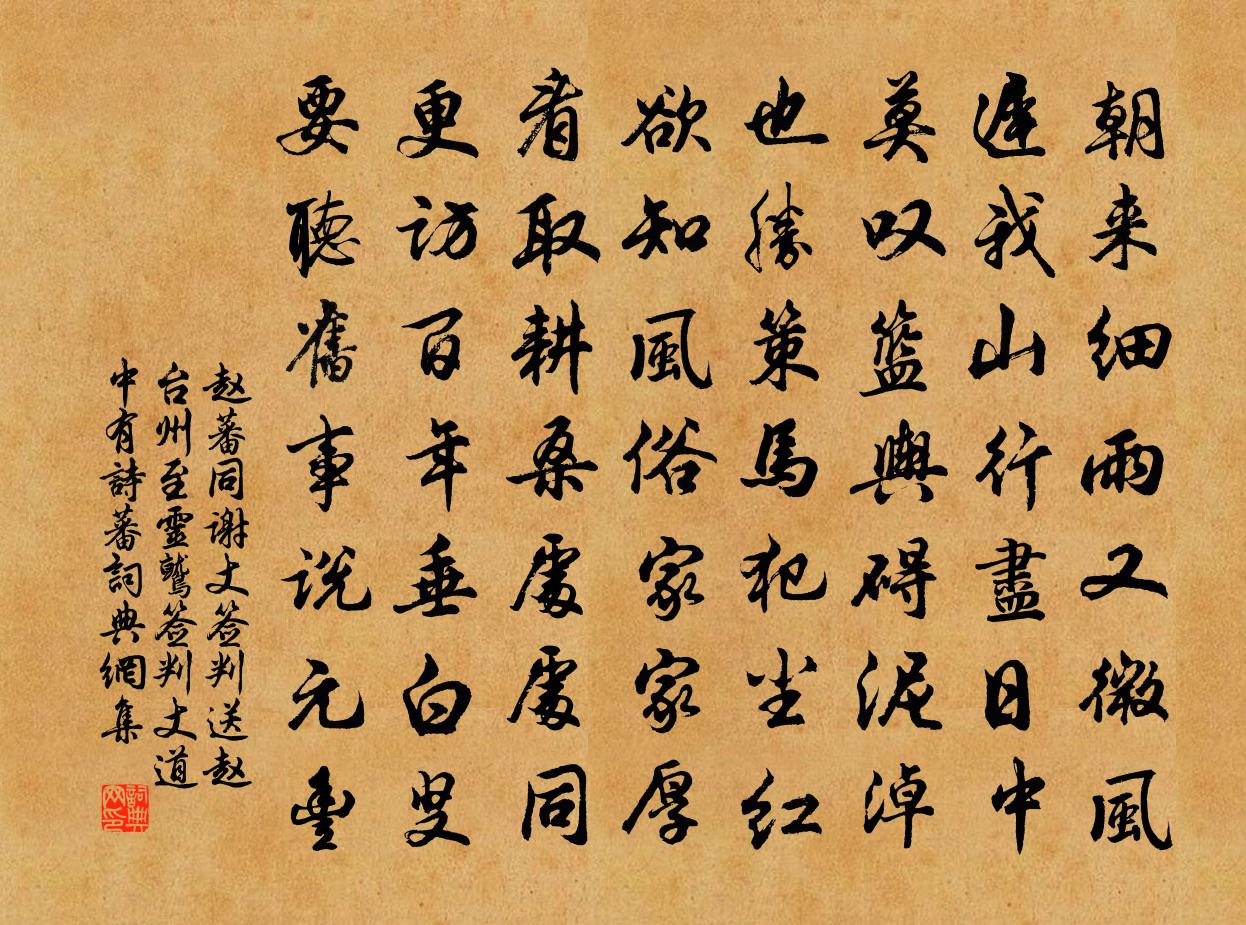 朝来细雨又微風
遲我山行盡日中
莫叹籃輿碍泥淖
也勝策馬犯尘红
欲知風俗家家厚
看取耕桑處處同
更访百年垂白叟
要聽舊事说元豊
赵蕃同谢丈签判送赵
台州至靈鷲签判丈道
中有詩蕃詞典網集
詞典网印